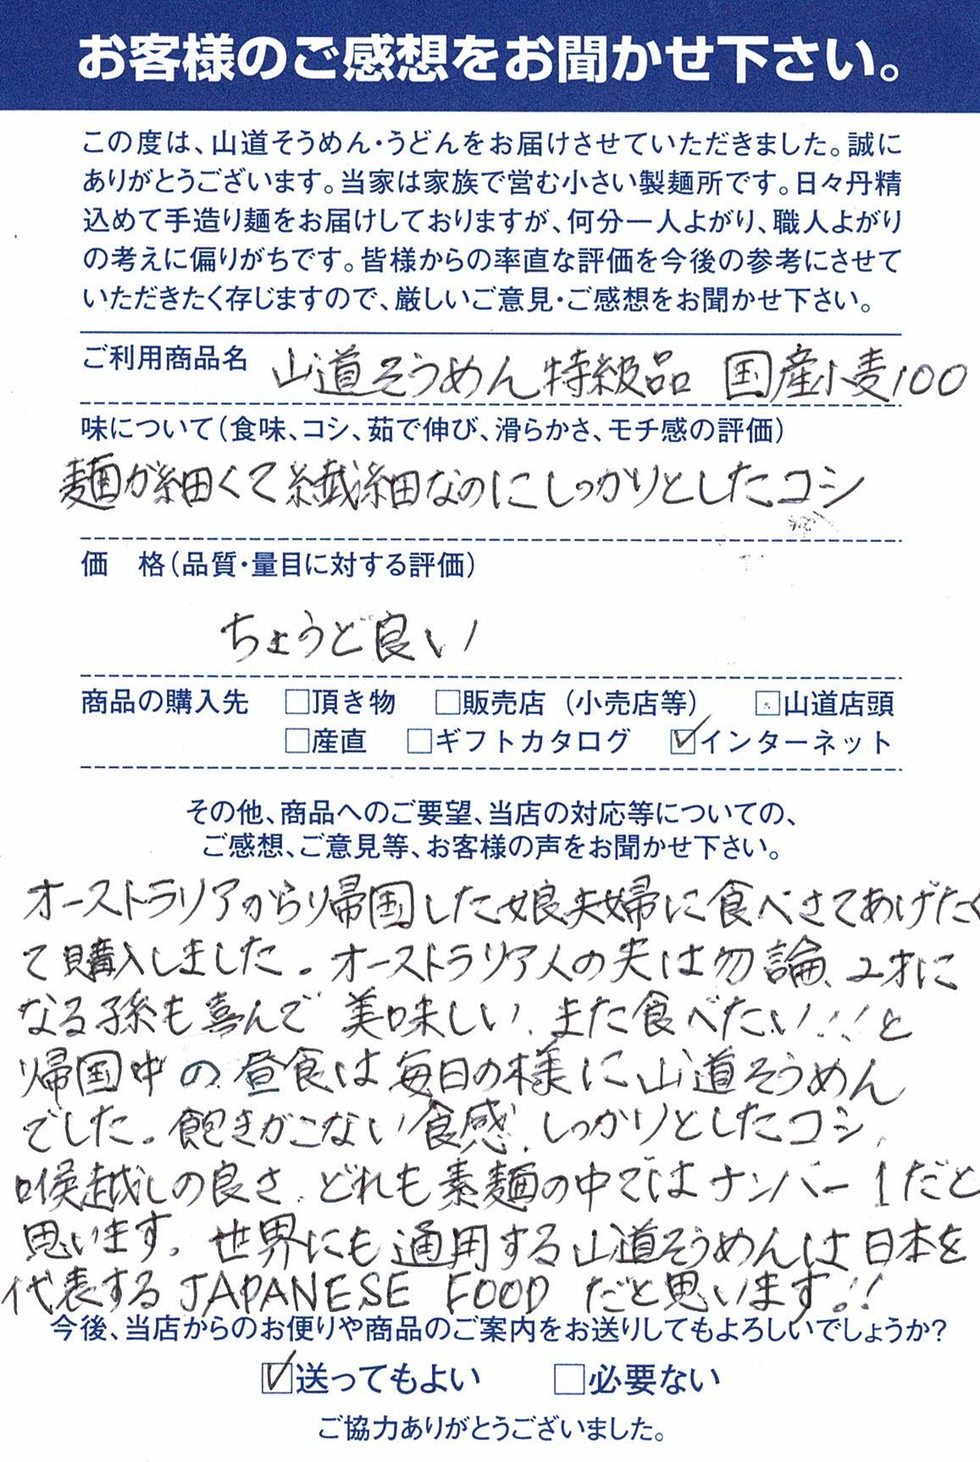 お客様のご感想をお聞かせ下さい。
この度は、山道そうめん・うどんをお届けさせていただきました。誠に
ありがとうございます。当家は家族で営む小さい製麺所です。日々丹精
込めて手造り麺をお届けしておりますが、何分一人よがり、職人よがり
の考えに偏りがちです。皆様からの率直な評価を今後の参考にさせて
いただきたく存じますので、厳しいご意見・ご感想をお聞かせ下さい。
ご利用商品名 山道そうめん特級品 国産小麦100
味について(食味、コシ、茹で伸び、滑らかさ、モチ感の評価)
麺が細くて繊細なのにしっかりとしたコシ
価 格(品質・量目に対する評価)
ちょうど良い
商品の購入先 □頂き物 □販売店(小売店等) □山道店頭
□産直 □ギフトカタログ ☑インターネット
その他、商品へのご要望、当店の対応等についての、
ご感想、ご意見等、お客様の声をお聞かせ下さい。
オーストラリアから帰国した娘夫婦に食べさてあげたく
て購入しました。オーストラリア人の夫は勿論、2才に
なる孫も喜んで 美味しい、また食べたい!!と
帰国中の昼食は毎日の様に山道そうめん
でした。飽きがこない食感、しっかりとしたコシ、
喉越しの良さ、どれも素麺の中ではナンバー1だと
思います。世界にも通用する山道そうめんは日本を
代表する JAPANESE FOOD だと思います。!!
今後、当店からのお便りや商品のご案内をお送りしてもよろしいでしょうか?
☑送ってもよい □必要ない
ご協力ありがとうございました。